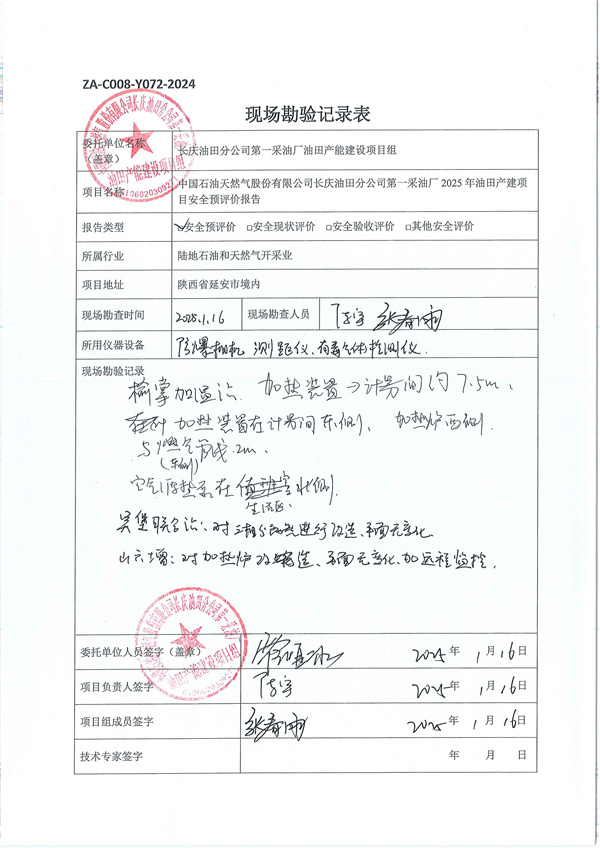 ZA-C008-Y072-2024
现场勘验记录表
委托单位名称（盖章）
长庆油田分公司第一采油厂油田产能建设项目组
项目名称
中国石油天然气股份有限公司长庆油田分公司第一采油厂 2025 年油田产建项
目安全预评价报告
报告类型
☑安全预评价 □安全现状评价 □安全验收评价 □其他安全评价
所属行业
陆地石油和天然气开采业
项目地址
陕西省延安市境内
现场勘查时间
2025.1.16
现场勘查人员
陈宇 张春雨
所用仪器设备
防爆相机 测距仪、有毒气体检测仪.
现场勘验记录
加热装置→计量间约7.5m、
加热装置在计量间东侧、加热炉西侧
与燃气管线2m、
(东侧)
空气源热泵在 室北侧.
生活区
进行改造、平面无变化
对加热炉 造、平面无变化、加远程监控.
委托单位人员签字（盖章）
2025 年 1 月 16 日
项目负责人签字
陈宇
2025 年 1 月 16 日
项目组成员签字
张春雨
2025 年 1 月 16 日
技术专家签字
年 月 日
油田产能建设项目组